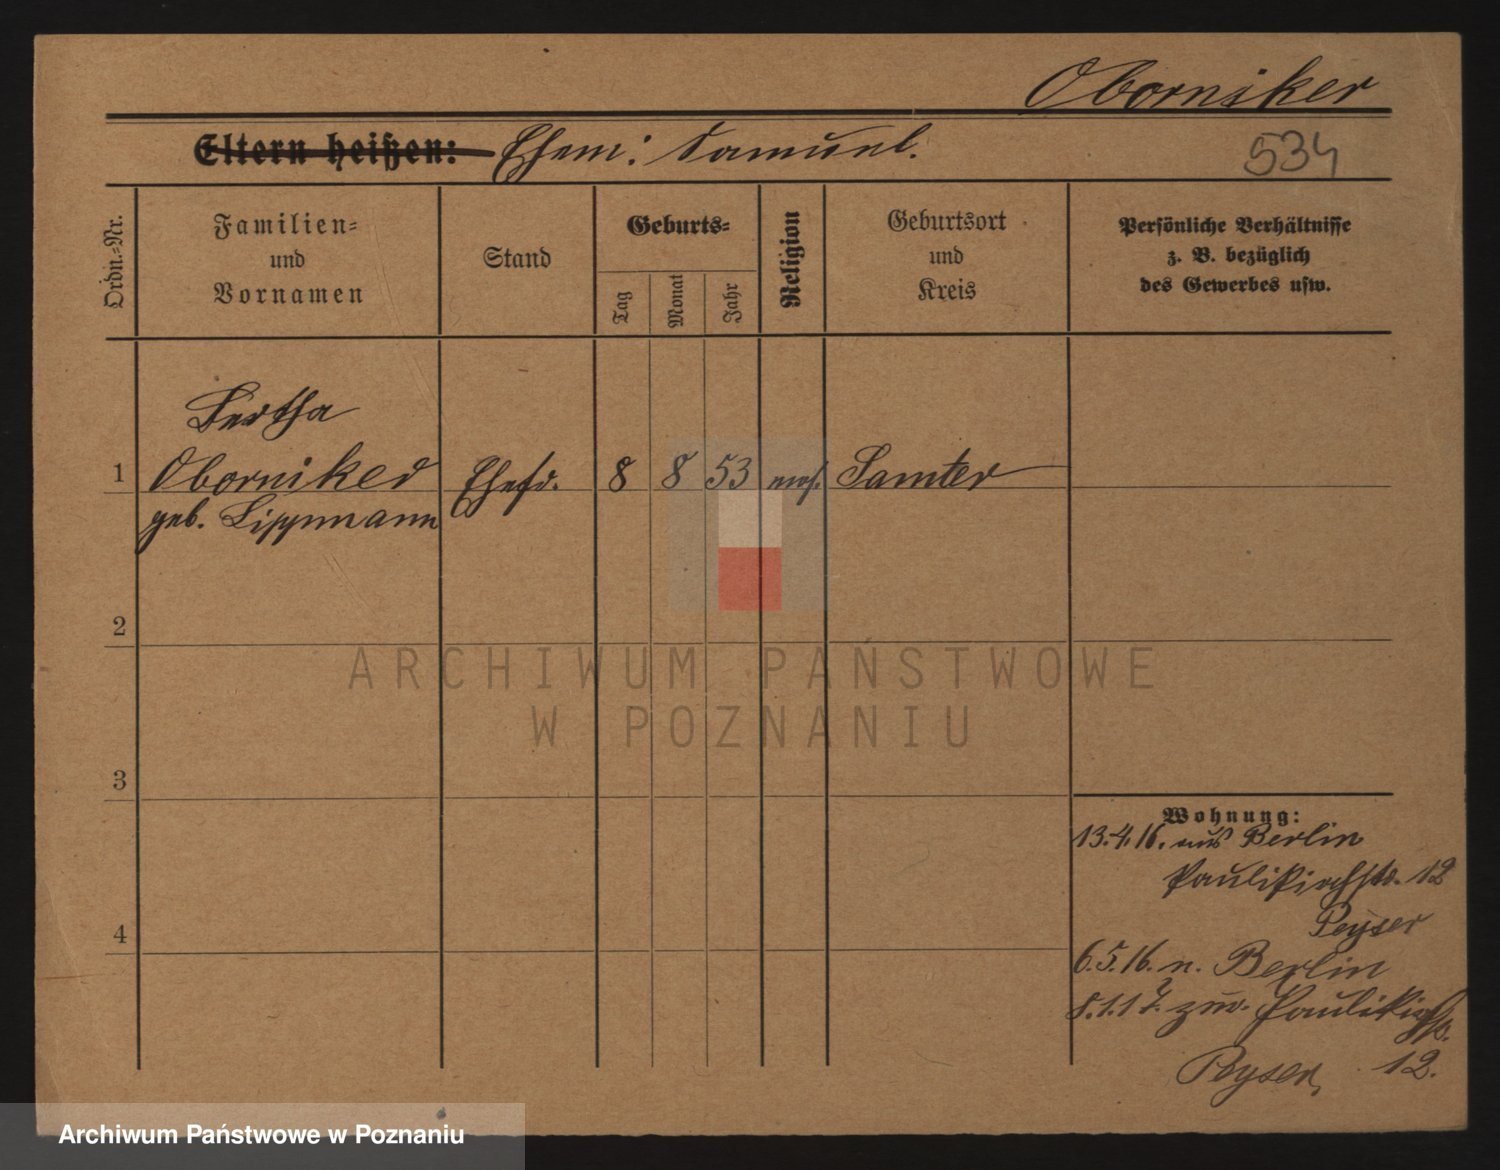 Oborniker
Eltern heißen: Ehem: Samuel.
534
Ordn.-Nr.
Familien-
und
Vornamen
Stand
Geburts-
Tag
Monat
Jahr
Religion
Geburtsort
und
Kreis
Persönliche Verhältnisse
z. B. bezüglich
des Gewerbes usw.
Bertha
1 Oborniker Ehefr. 8 8 53 mos. Samter
geb. Lippmann
2
3
4
Wohnung:
13.4.16. aus Berlin
Paulikirchstr. 12
Peyser
6.5.16. n. Berlin
8.1.17. zur. Paulikirchstr.
Peyser, 12.
ARCHIWUM PAŃSTWOWE
W POZNANIU
Archiwum Państwowe w Poznaniu